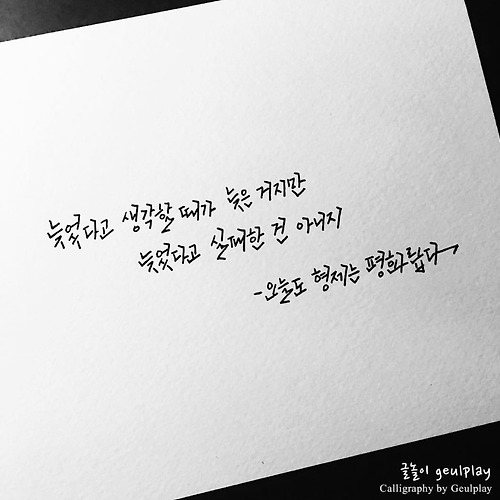 늦었다고 생각할 때가 늦은 거지만
늦었다고 실패한 건 아니지
-오늘도 형제는 평화롭다-
글놀이 geulplay
Calligraphy by Geulplay